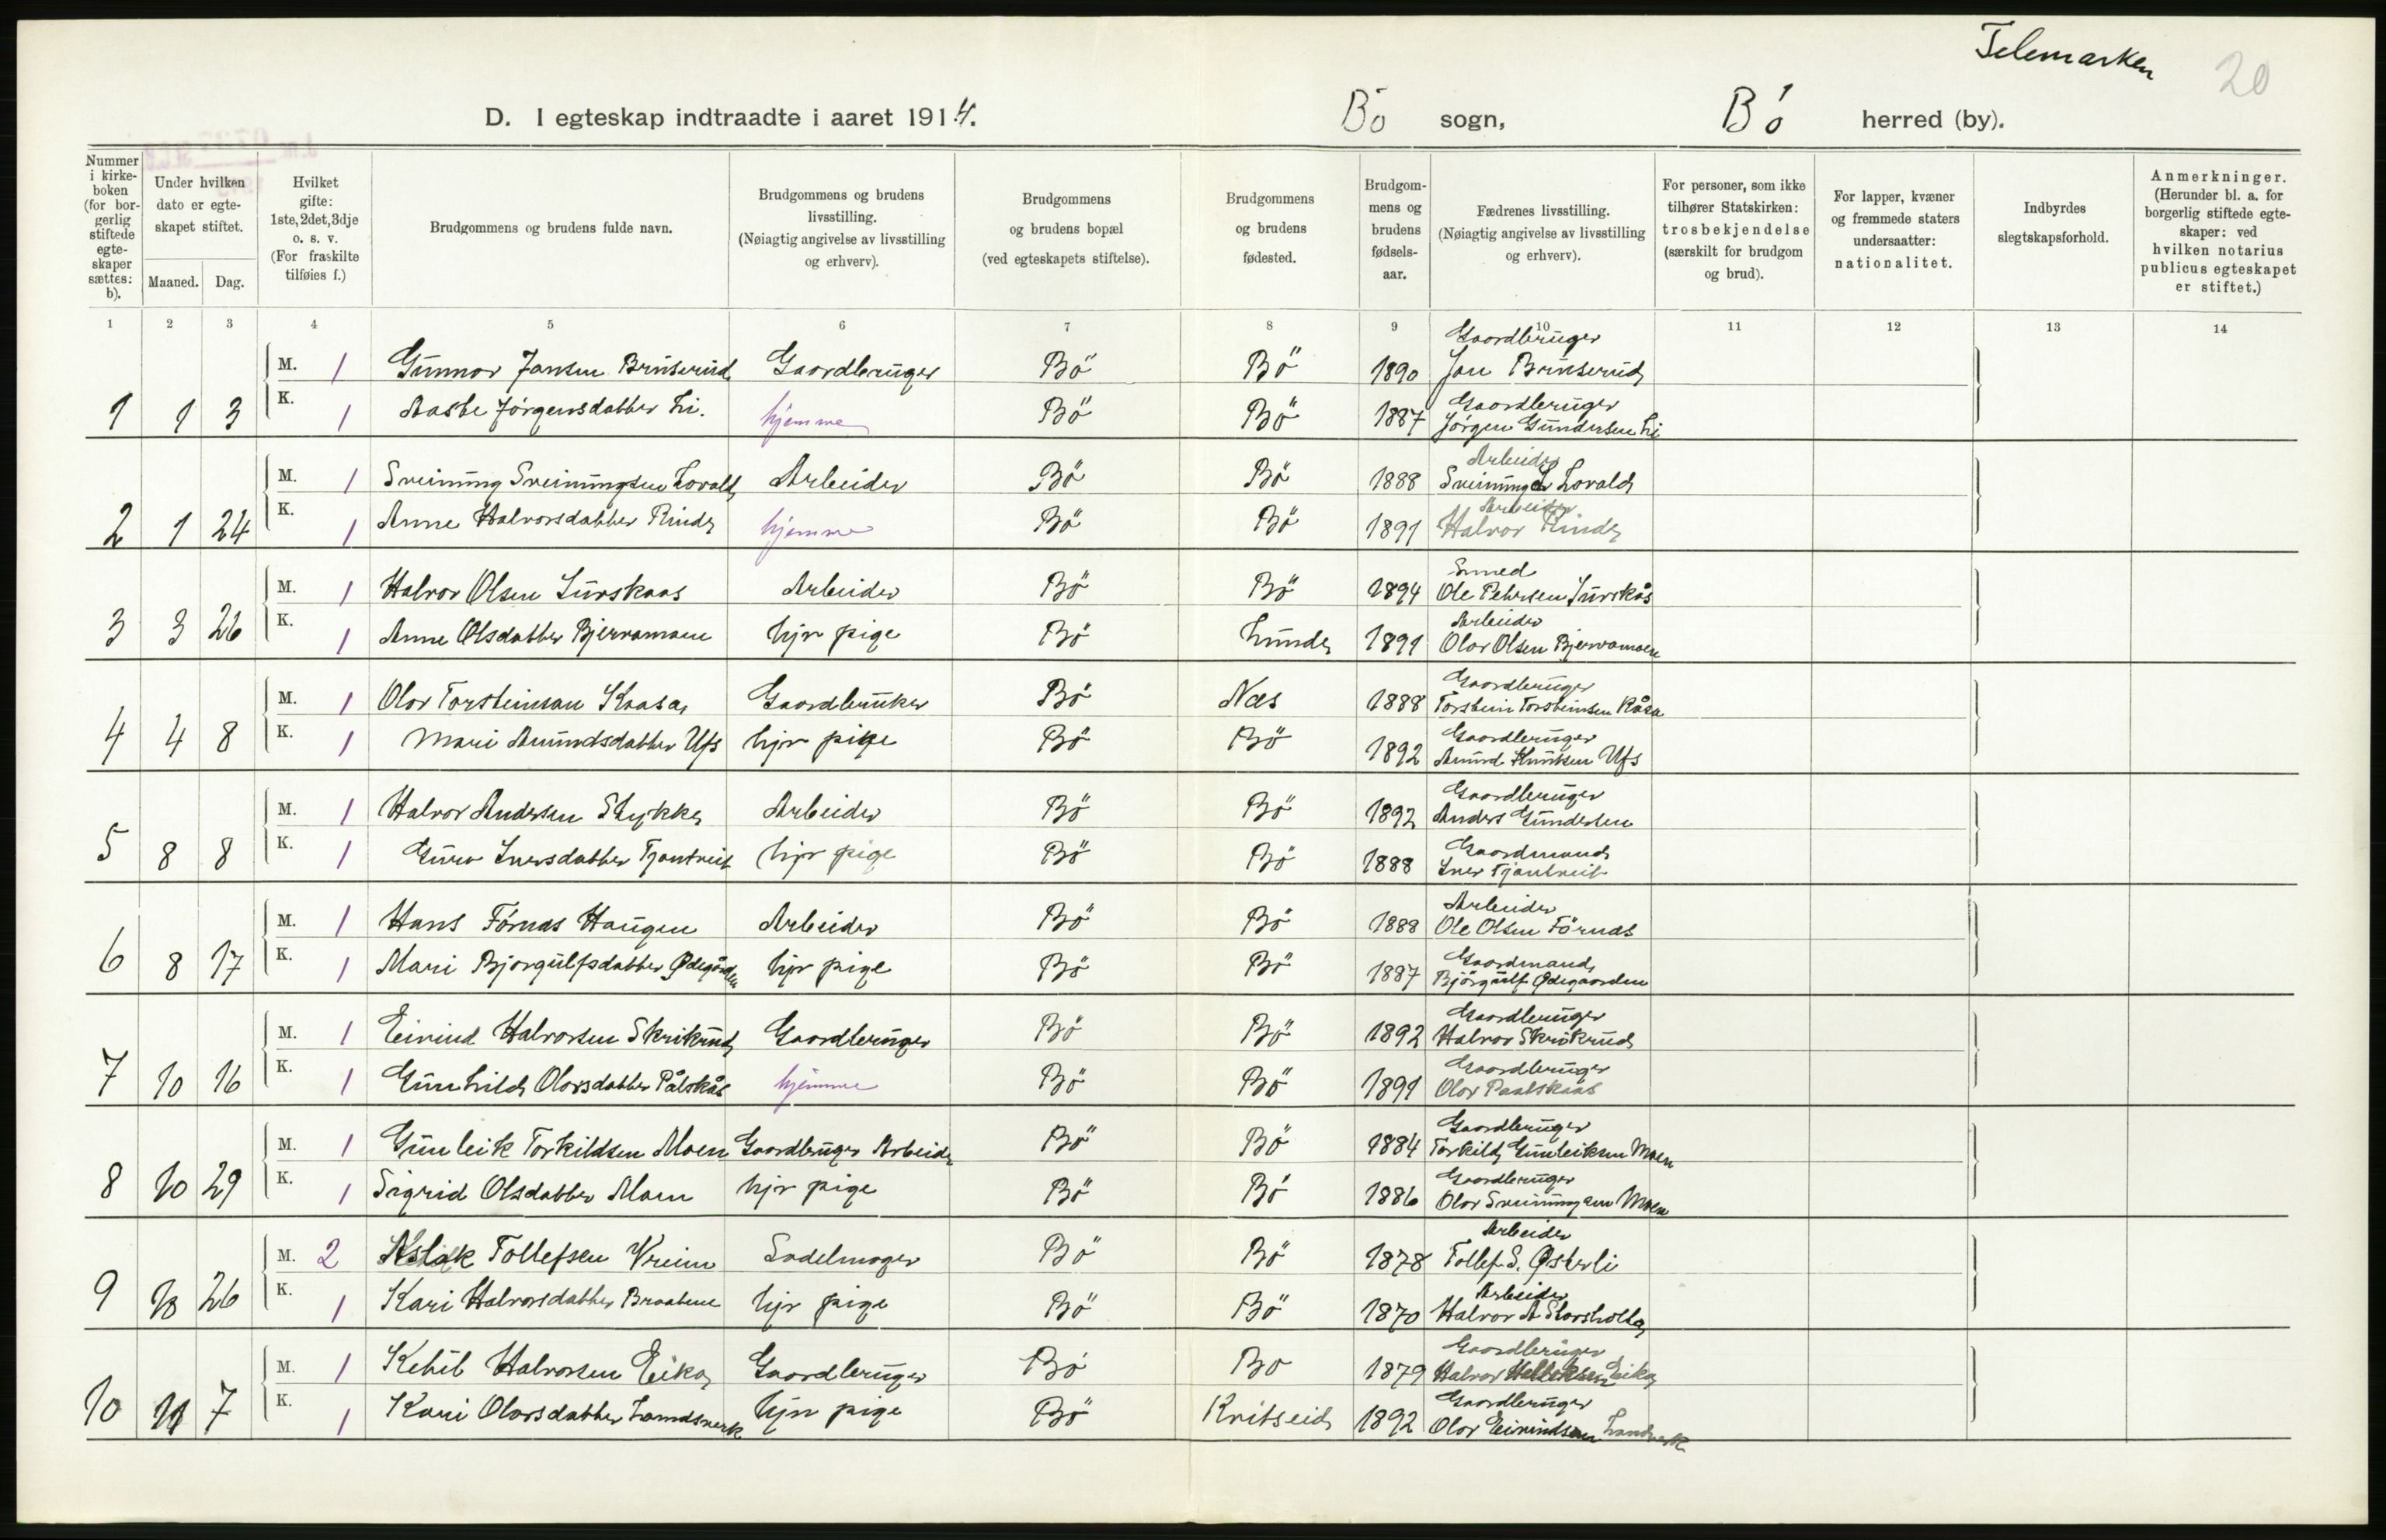 Telemarken
20
D. I egteskap indtraadte i aaret 1914.
Bö sogn, Bö herred (by).
Nummer i kirke-boken (for bor-gerlig stiftede egte-skaper sættes: b).
Under hvilken dato er egte-skapet stiftet.
Maaned. Dag.
Hvilket gifte: 1ste, 2det, 3dje o. s. v. (For fraskilte tilføies f.)
Brudgommens og brudens fulde navn.
Brudgommens og brudens livsstilling. (Nøiagtig angivelse av livsstilling og erhverv).
Brudgommens og brudens bopæl (ved egteskapets stiftelse).
Brudgommens og brudens fødested.
Brudgom-mens og brudens fødsels-aar.
Fædrenes livsstilling. (Nøiagtig angivelse av livsstilling og erhverv).
For personer, som ikke tilhører Statskirken: trosbekjendelse (særskilt for brudgom og brud).
For lapper, kvæner og fremmede staters undersaatter: nationalitet.
Indbyrdes slegtskapsforhold.
Anmerkninger. (Herunder bl. a. for borgerlig stiftede egte-skaper: ved hvilken notarius publicus egteskapet er stiftet.)
1 2 3 4 5 6 7 8 9 10 11 12 13 14
Gaardbruger
M. 1 Gunnar Jansen Brunserud Gaardbruger Bö Bö 1890 Jan Brunserud
Gaardbruger
1 1 3 K. 1 Aaste Jörgensdatter Li. hjemme Bö Bö 1887 Jörgen Gundersen Li
Arbeider
M. 1 Sveinung Sveinungsen Lovald Arbeider Bö Bö 1888 Sveinung Lovald
Arbeider
2 1 24 K. 1 Anne Halvorsdatter Rinde hjemme Bö Bö 1891 Halvor Rinde
Smed
M. 1 Halvor Olsen Lurskaas Arbeider Bö Bö 1894 Ole Petersen Lurskås
Arbeider
3 3 26 K. 1 Anne Olsdatter Bjervamoen hjv pige Bö Lunde 1891 Olav Olsen Bjervamoen
Gaardbruger
M. 1 Olav Torsteinsen Kaasa Gaardbruker Bö Næs 1888 Torstein Torsteinsen Kåsa
Gaardbruger
4 4 8 K. 1 Mari Amundsdatter Ufs hjv pige Bö Bö 1892 Amund Knutsen Ufs
Gaardbruger
M. 1 Halvor Andersen Stykke Arbeider Bö Bö 1892 Anders Gundersen
Gaardmand
5 8 8 K. 1 Guro Iversdatter Tjantveit hjv pige Bö Bö 1888 Iver Tjantveit
Arbeider
M. 1 Hans Förnæs Haugen Arbeider Bö Bö 1888 Ole Olsen Förnæs
Gaardmand
6 8 17 K. 1 Mari Bjorgulfsdatter Ødegården hjv pige Bö Bö 1887 Björgulf Ødegaarden
Gaardbruger
M. 1 Eivind Halvorsen Skrikrud Gaardbruger Bö Bö 1892 Halvor Skrikrud
Gaardbruger
7 10 16 K. 1 Gunhild Olavsdatter Pålskås hjemme Bö Bö 1891 Olav Paalskaas
Gaardbruger
M. 1 Gunleik Torkildsen Moen Gaardbruger Arbeider Bö Bö 1884 Torkild Gunleiksen Moen
Gaardbruger
8 10 29 K. 1 Sigrid Olsdatter Moen hjv pige Bö Bö 1886 Olav Sveinungsen Moen
Arbeider
M. 2 Aslak Tollefsen Vreim Sadelmager Bö Bö 1878 Tollef S. Østerli
Arbeider
9 10 26 K. 1 Kari Halvorsdatter Braatene hjv pige Bö Bö 1870 Halvor A Storsholta
Gaardbruger
M. 1 Ketil Halvorsen Eika Gaardbruger Bö Bo 1879 Halvor Halleksen Eika
Gaardbruger
10 11 7 K. 1 Kari Olavsdatter Landsverk hjv pige Bö Kvitseid 1892 Olav Eivindsen Landverk